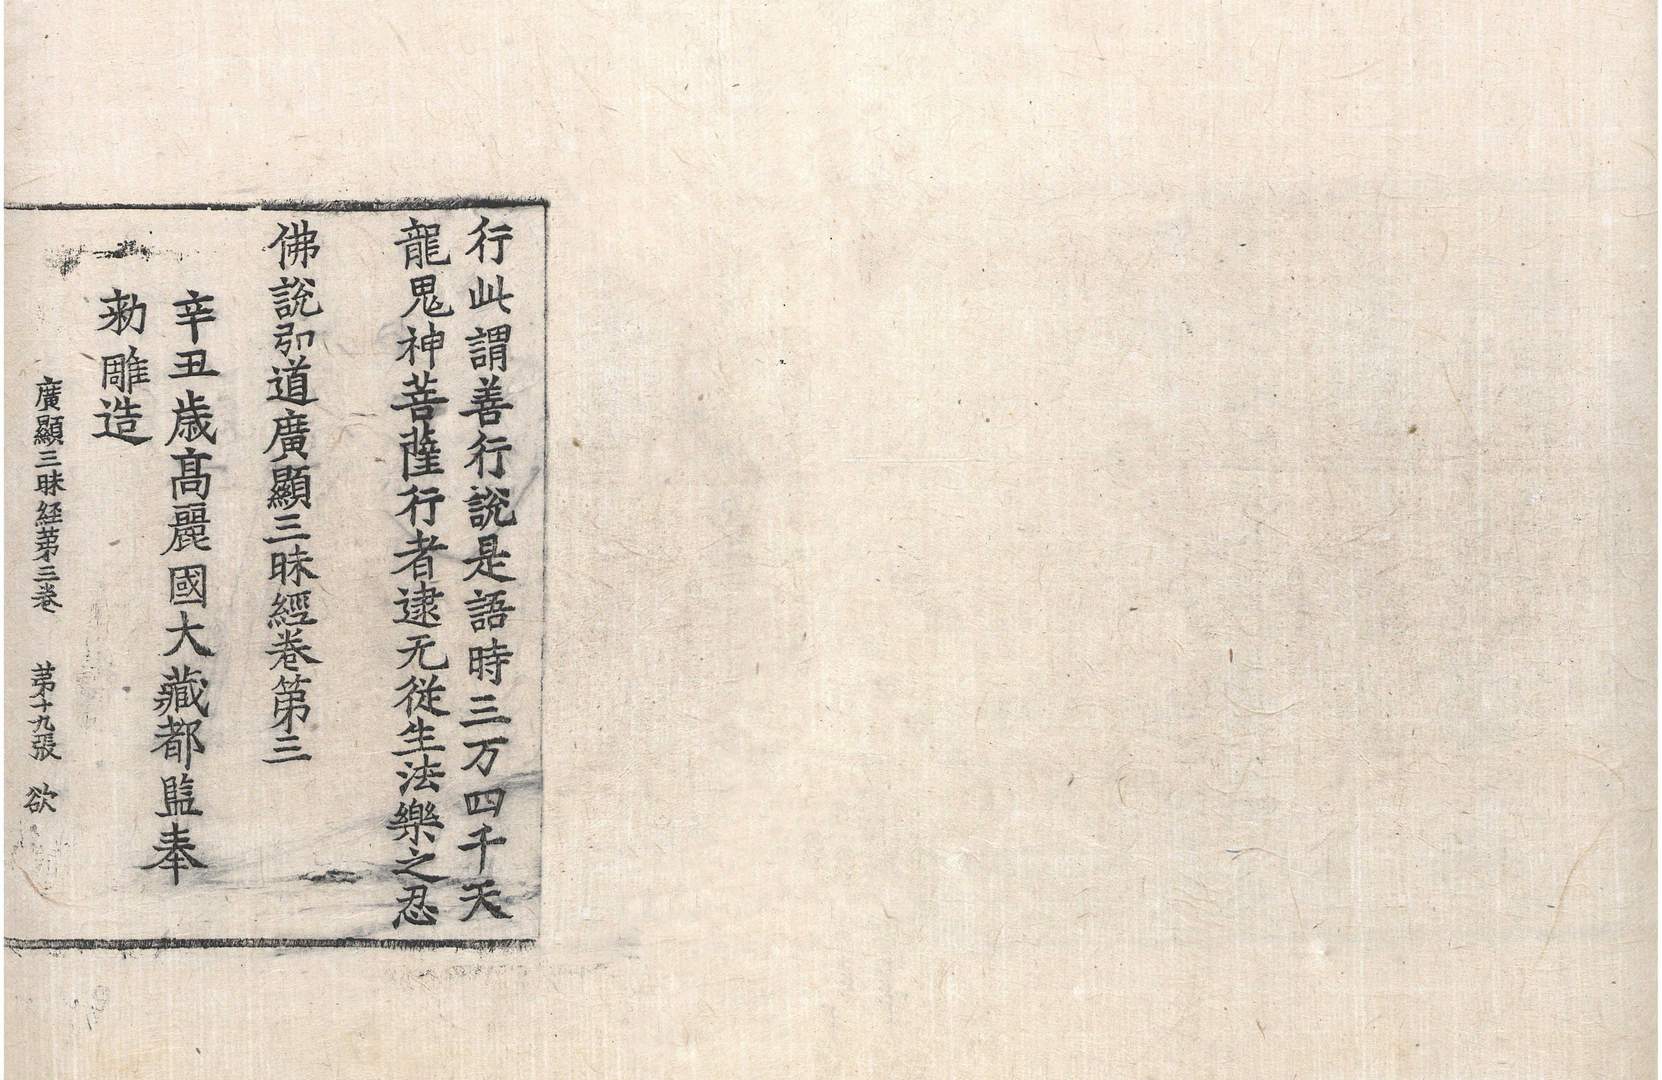 行此謂善行說是語時三万四千天
龍鬼神菩薩行者逮无從生法樂之忍
佛說弘道廣顯三昧經卷第三
辛丑歲高麗國大藏都監奉
勅雕造
廣顯三昧経第三卷 第十九張 欲